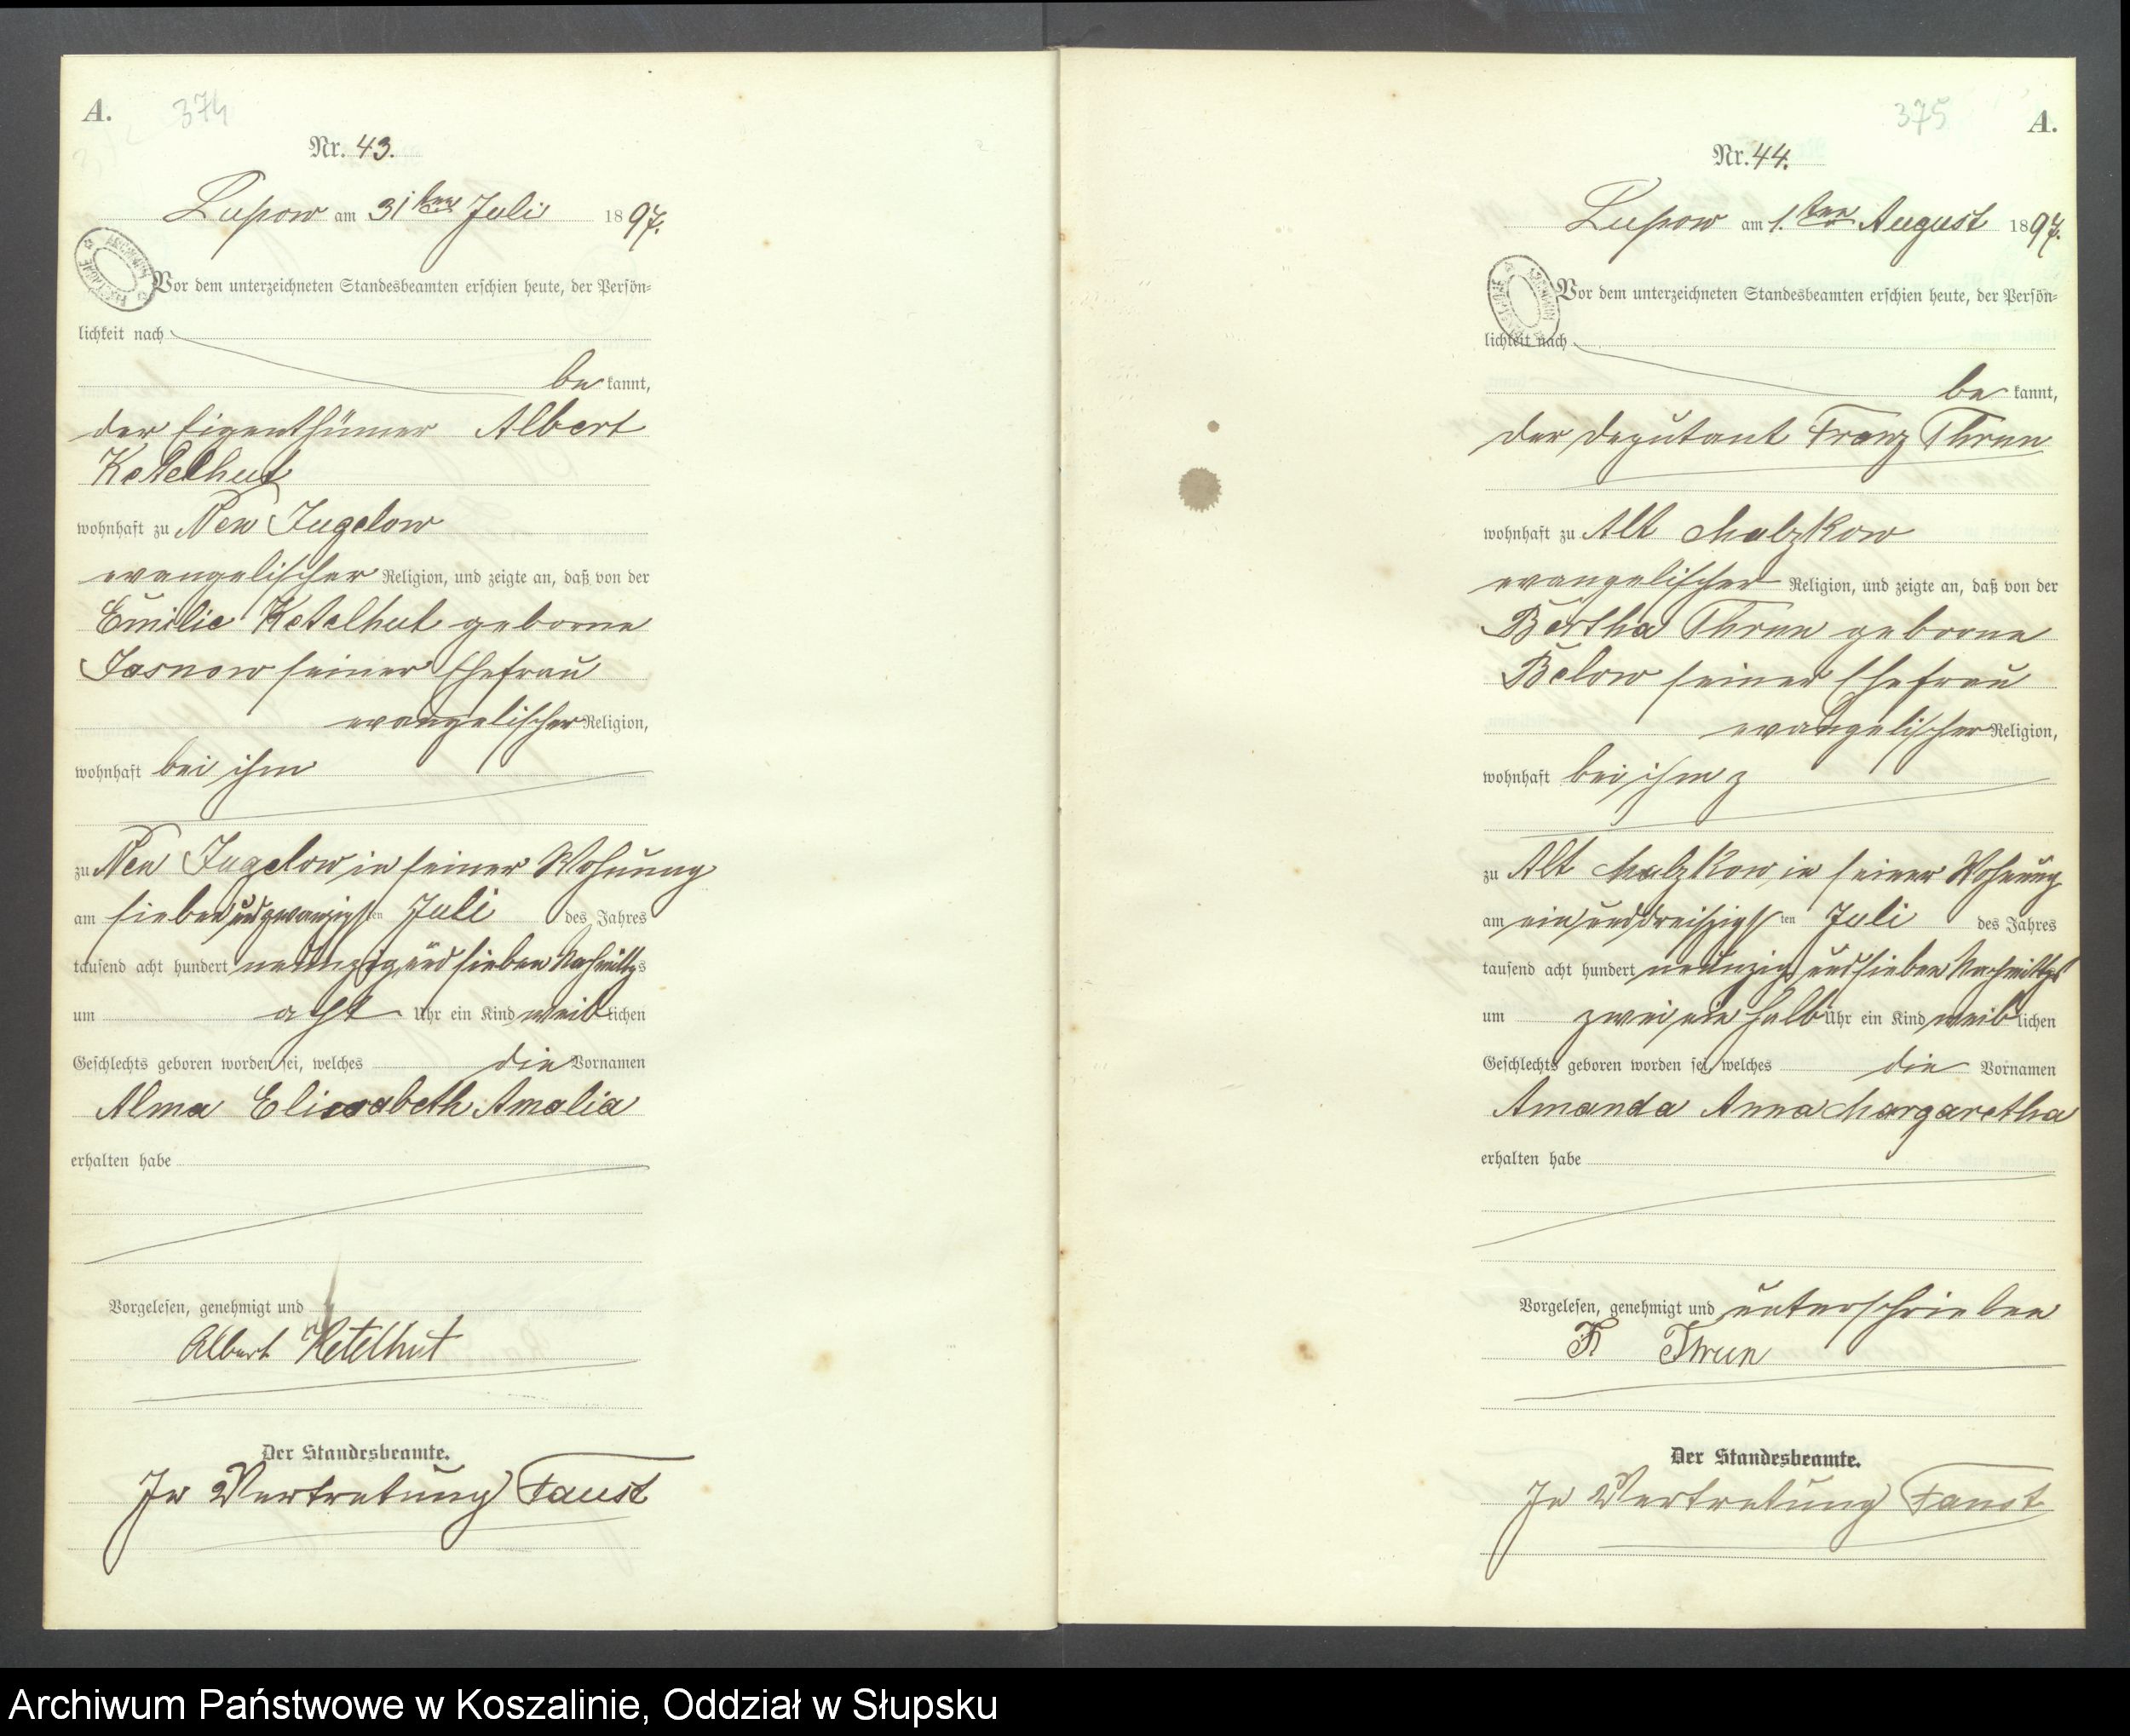 A.
374
Nr. 43.
Lupow am 31ten Juli 1897.
Vor dem unterzeichneten Standesbeamten erschien heute, der Persön=
lichkeit nach
be kannt,
der Eigenthümer Albert
Ketelhut
wohnhaft zu Neu Jugelow
evangelischer Religion, und zeigte an, daß von der
Emilie Ketelhut geborne
Jasnow seiner Ehefrau
evangelischer Religion,
wohnhaft bei ihm
zu Neu Jugelow in seiner Wohnung
am sieben und zwanzigsten Juli des Jahres
tausend acht hundert neunzig und sieben Nachmittags
um acht Uhr ein Kind weiblichen
Geschlechts geboren worden sei, welches die Vornamen
Alma Elisabeth Amalia
erhalten habe
Vorgelesen, genehmigt und
Albert Ketelhut
Der Standesbeamte.
In Vertretung Faust
375
A.
Nr. 44.
Lupow am 1.ten August 1897.
Vor dem unterzeichneten Standesbeamten erschien heute, der Persön=
lichkeit nach
be kannt,
der Deputant Franz Thrun
wohnhaft zu Alt Malzkow
evangelischer Religion, und zeigte an, daß von der
Bertha Thrun geborne
Below seiner Ehefrau
evangelischer Religion,
wohnhaft bei ihm
zu Alt Malzkow in seiner Wohnung
am ein und dreißigsten Juli des Jahres
tausend acht hundert neunzig und sieben Nachmittags
um zwei ein halb Uhr ein Kind weiblichen
Geschlechts geboren worden sei, welches die Vornamen
Amanda Anna Margaretha
erhalten habe
Vorgelesen, genehmigt und unterschrieben
F Thrun
Der Standesbeamte.
In Vertretung Faust
Archiwum Państwowe w Koszalinie, Oddział w Słupsku